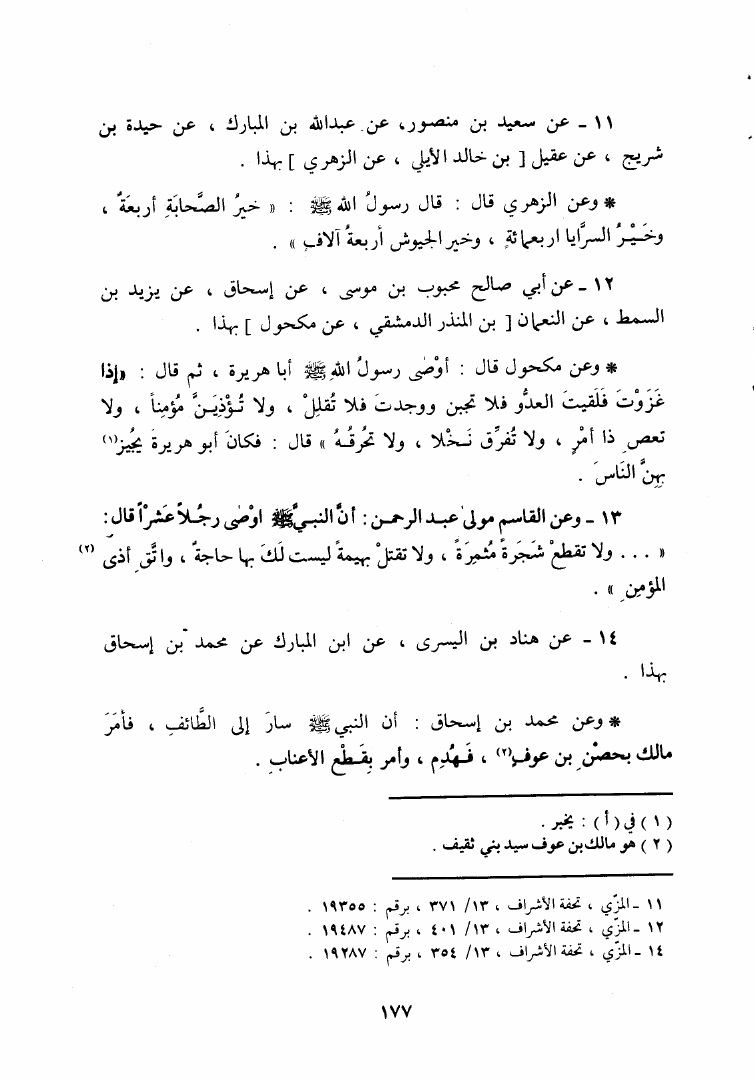 ١١ - عن سعيد بن منصور، عن عبدالله بن المبارك ، عن حيدة بن
شريج ، عن عقيل [ بن خالد الأيلي ، عن الزهري ] بهذا .
* وعن الزهري قال : قال رسولُ الله ﷺ : « خيرُ الصَّحابَةِ أربعَةٌ ،
وخَيْرُ السرَّايا اربعمائةٍ ، وخير الجيوش أربعةُ آلافٍ » .
١٢ - عن أبي صالح محبوب بن موسى ، عن إسحاق ، عن يزيد بن
السمط ، عن النعمان [ بن المنذر الدمشقي ، عن مكحول ] بهذا .
* وعن مكحول قال : أوْصٰى رسولُ اللهِ ﷺ أبا هريرة ، ثم قال : «إذا
غَزَوْتَ فَلَقيتَ العدُّو فلا تجبن ووجدتَ فلا تُقلِلْ ، ولا تُؤْذِيَنَّ مُؤمِناً ، ولا
تعصِ ذا أمْرٍ ، ولا تُفرِّق نَخْلا ، ولا تحُرقْهُ » قال : فكانَ أبو هريرةَ يجُيز(١)
بهِنَّ النَاسَ .
١٣ - وعن القاسم مولىٰ عبد الرحمن : أنَّ النبيَّ ﷺ اوْصٰى رجُلاً عَشْراً قال :
« ... ولا تقطعْ شَجَرةً مُثمِرَةً ، ولا تقتلْ بهيمةً ليست لَكَ بها حاجةٌ ، واتَّقِ أذى (٢)
المؤمِنِ » .
١٤ - عن هناد بن اليسرى ، عن ابن المبارك عن محمد بن إسحاق
بهذا .
* وعن محمد بن إسحاق : أن النبي ﷺ سارَ إلى الطَّائفِ ، فأمَرَ
مالك بحصْنِ بن عوفٍ(٢) ، فَهُدِم ، وأمر بِقَطْع الأعنابِ .
( ١ ) في ( أ ) : يخبر .
( ٢ ) هو مالك بن عوف سيد بني ثقيف .
١١ - المزّي ، تحفة الأشراف ، ١٣/ ٣٧١ ، برقم : ١٩٣٥٥ .
١٢ - المزّي ، تحفة الأشراف ، ١٣/ ٤٠١ ، برقم : ١٩٤٨٧ .
١٤ - المزّي ، تحفة الأشراف ، ١٣/ ٣٥٤ ، برقم : ١٩٢٨٧ .
١٧٧